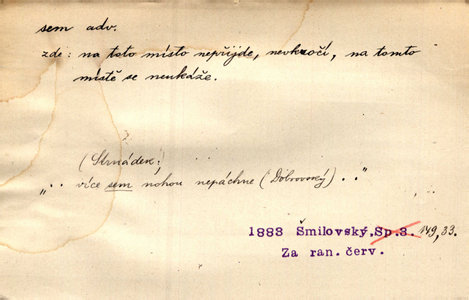 sem adv.
zde: na toto místo nepřijde, nevkročí, na tomto
místě se neukáže.
(Strnádek:
„.. více sem nohou nepáchne (Dobrovský) .."
1883 Šmilovský, Sp.3. 149,33.
Za ran. červ.